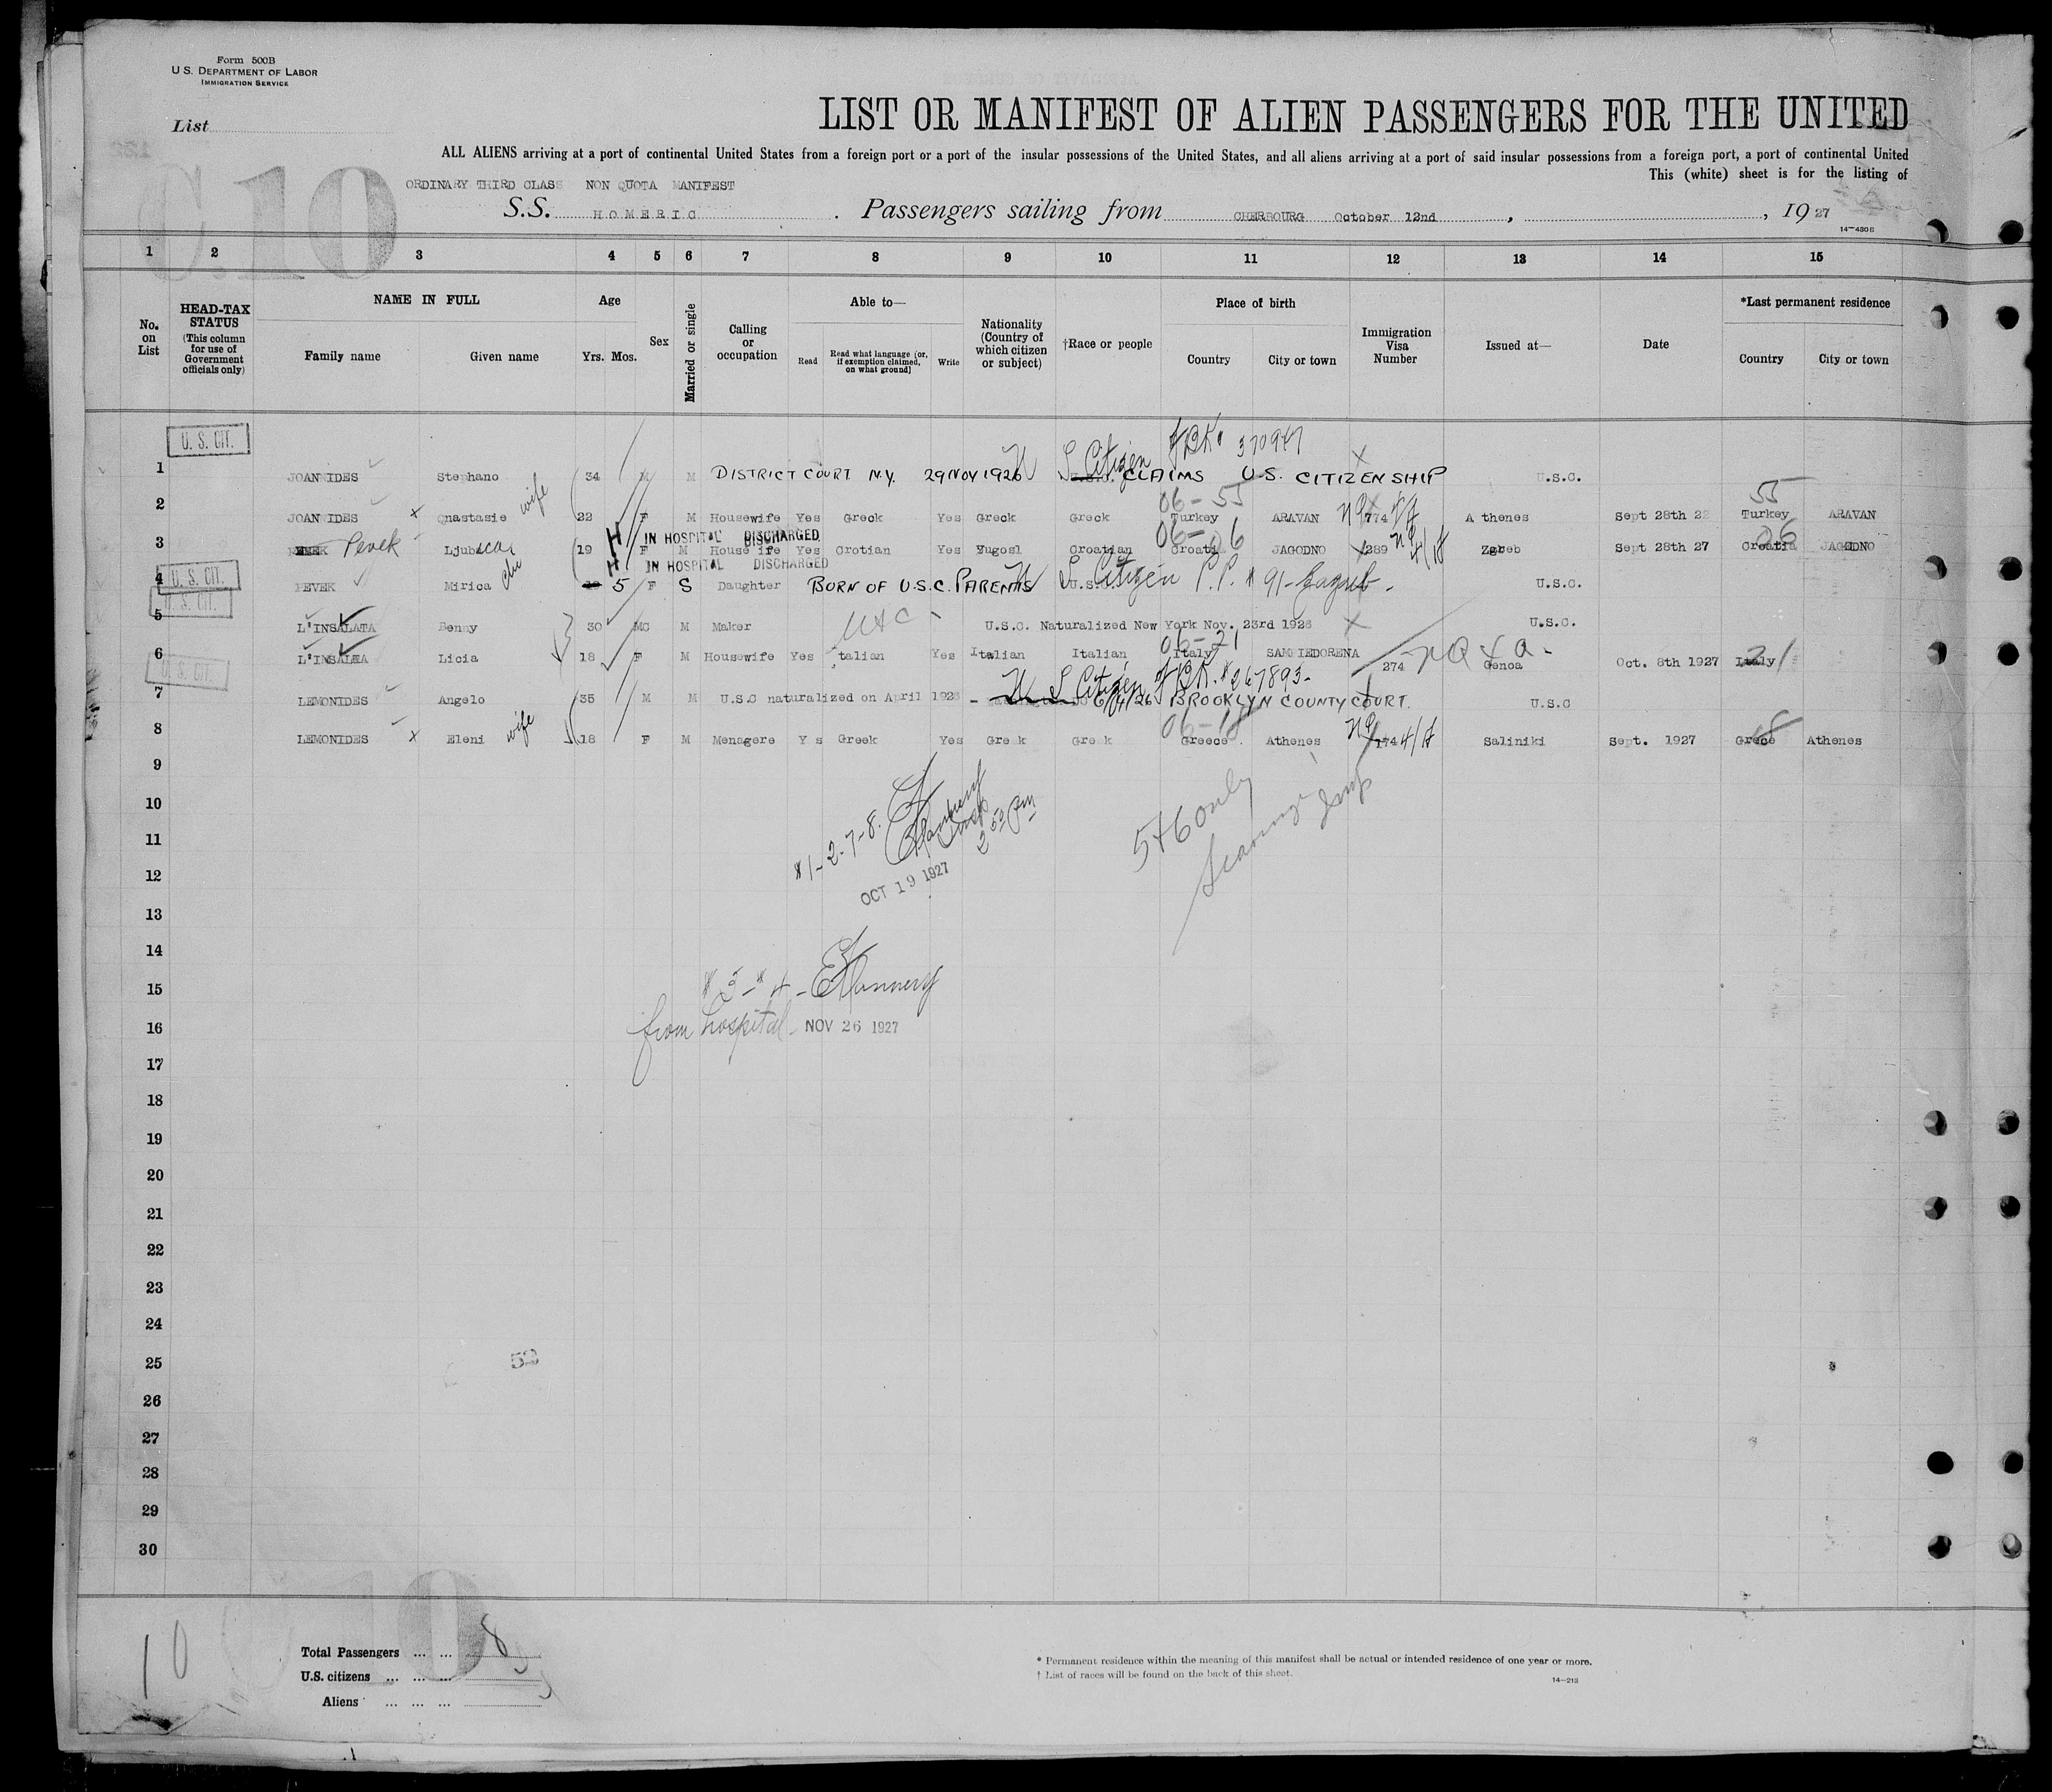 Form 500B
U S. DEPARTMENT OF LABOR
IMMIGRATION SERVICE
List
LIST OR MANIFEST OF ALIEN PASSENGERS FOR THE UNITED
ALL ALIENS arriving at a port of continental United States from a foreign port or a port of the insular possessions of the United States, and all aliens arriving at a port of said insular possessions from a foreign port, a port of continental United
This (white) sheet is for the listing of
C.10
ORDINARY THIRD CLASS NON QUOTA MANIFEST
S.S. HOMERIC. Passengers sailing from CHERBOURG October 12nd, , 19 27
14—430B
1 2 3 4 5 6 7 8 9 10 11 12 13 14 15
No. on List
HEAD-TAX STATUS (This column for use of Government officials only)
NAME IN FULL
Family name Given name
Age
Yrs. Mos.
Sex
Married or single
Calling or occupation
Able to—
Read Read what language (or, if exemption claimed, on what ground) Write
Nationality (Country of which citizen or subject)
†Race or people
Place of birth
Country City or town
Immigration Visa Number
Issued at—
Date
*Last permanent residence
Country City or town
U. S. CIT. 370947
1 JOANNIDES Stephano 34 M M DISTRICT COURT N.Y. 29 NOV 1926 U S Citizen CLAIMS U.S. CITIZENSHIP U.S.C.
06-55 55
2 JOANNIDES x Qnastasie wife 22 F M Housewife Yes Greck Yes Greck Greck Turkey ARAVAN 774 A thenes Sept 28th 22 Turkey ARAVAN
H IN HOSPITAL DISCHARGED 06-26 26
3 Pevek Ljubica 19 F M House ife Yes Crotian Yes Yugosl Croatian Croatia JAGODNO 289 Zgreb Sept 28th 27 Croatia JAGODNO
H IN HOSPITAL DISCHARGED
U. S. CIT.
4 PEVEK Mirica 5 F S Daughter BORN OF U.S.C. PARENTS U S Citizen P.P. # 91 - Zagreb - U.S.C.
U. S. CIT.
5 L'INSALATA Benny 30 M M Maker U.S.C. Naturalized New York Nov. 23rd 1926 x U.S.C.
06-21
6 L'INSALATA Licia 18 F M Housewife Yes talian Yes Italian Italian Italy SAMPIEDORENA 274 Genoa Oct. 8th 1927 Italy 21
U. S. CIT.
U S Citizen #267893-
7 LEMONIDES Angelo 35 M M U.S.C naturalized on April 1926 - 6/04/26 BROOKLYN COUNTY COURT. U.S.C
06-18
8 LEMONIDES x Eleni wife 18 F M Menagere Y s Greek Yes Gre k Gre k Greece Athenes 174 Saliniki Sept. 1927 Grece Athenes
9
10
#1-2-7-8.
2 50 Pm
5+6 only
11
OCT 19 1927
12
13
14
15 #3-#4-
16 from hospital - NOV 26 1927
17
18
19
20
21
22
23
24
25 52
26
27
28
29
30
10
Total Passengers ... ... 8
U.S. citizens ... ... ...
Aliens ... ... ...
* Permanent residence within the meaning of this manifest shall be actual or intended residence of one year or more.
† List of races will be found on the back of this sheet.
14—213